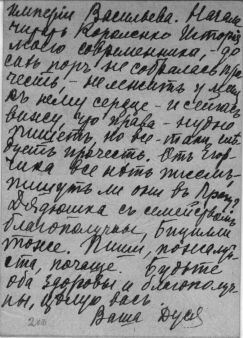 империи Васильева. Начала
читать Короленко Исторію
моего современника, - до
сих поръ не собралась про-
честь, - не лежитъ у меня
къ нему сердце - и сейчасъ
вижу, что права - нудно
пишетъ, но все-таки слѣ-
дуетъ прочесть. Отъ
все нѣтъ писемъ,
пишутъ ли они в
Дядюшка съ семействомъ
благополучны,
тоже. Пиши, пожалуй-
ста, почаще. Будьте
оба здоровы и благополуч-
ны, цѣлую васъ.
Ваша Дуся